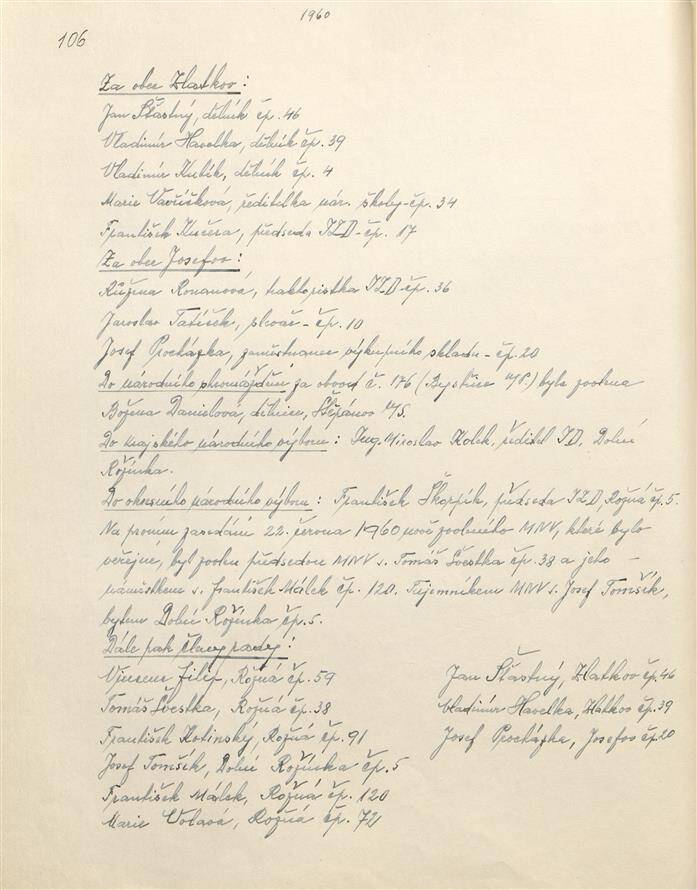 1960
106
Za obec Zlatkov:
Jan Šťastný, dělník čp. 46
Vladimír Havelka, dělník čp. 39
Vladimír Kubík, dělník čp. 4
Marie Vavříčková, ředitelka nár. školy - čp. 34
František Kučera, předseda JZD - čp. 17
Za obec Josefov:
Růžena Romanová, traktoristka JZD čp. 36
Jaroslav Tatíček, slevač - čp. 10
Josef Procházka, zaměstnanec výkupního skladu - čp. 20
Do národního shromáždění za obvod č. 176 (Bystřice n/P.) byla zvolena
Božena Danielová, dělnice, Štěpánov n/S.
Do krajského národního výboru: Ing. Miroslav Kolek, ředitel JD. Dolní
Rožínka.
Do okresního národního výboru: František Škorpík, předseda JZD, Rožná čp. 5.
Na prvním zasedání 22. června 1960 nově zvoleného MNV, které bylo
veřejné, byl zvolen předsedou MNV s. Tomáš Švestka čp. 38 a jeho -
náměstkem s. František Málek čp. 120. Tajemníkem MNV s. Josef Tomšík,
bytem Dolní Rožínka čp. 5.
Dále pak členy rady:
Vincenc Filip, Rožná čp. 59
Tomáš Švestka, Rožná čp. 38
František Kotinský, Rožná čp. 91
Josef Tomšík, Dolní Rožínka čp. 5
František Málek, Rožná čp. 120
Marie Volavá, Rožná čp. 72
Jan Šťastný, Zlatkov čp. 46
Vladimír Havelka, Zlatkov čp. 39
Josef Procházka, Josefov čp. 20